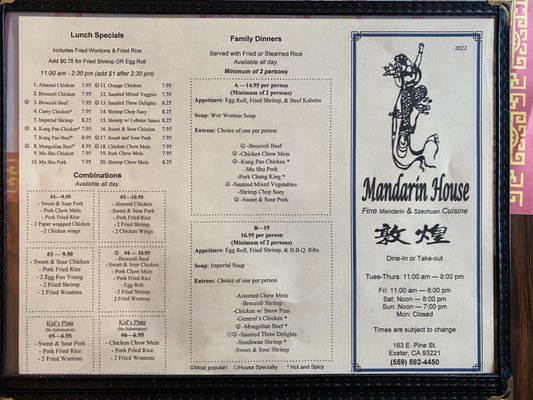 Lunch Specials
Includes Fried Wontons & Fried Rice
Add $0.75 for Fried Shrimp OR Egg Roll
11:00 am - 2:30 pm (add $1 after 2:30 pm)
1. Almond Chicken 7.95
2. Broccoli Chicken 7.95
3. Broccoli Beef 7.95
4. Curry Chicken* 7.95
5. Imperial Shrimp 8.25
6. Kung Pao Chicken* 7.95
7. Kung Pao Beef* 7.95
8. Mongolian Beef* 7.95
9. Mu Shu Chicken 7.95
10. Mu Shu Pork 7.95
11. Orange Chicken 7.95
12. Sautéed Mixed Veggies 7.50
13. Sautéed Three Delights 8.25
14. Shrimp Chop Suey 8.25
15. Shrimp w/ Lobster Sauce 8.25
16. Sweet & Sour Chicken 7.95
17. Sweet and Sour Pork 7.95
18. Chicken Chow Mein 7.95
19. Pork Chow Mein 7.95
20. Shrimp Chow Mein 8.25
Combinations
Available all day.
#1—9.95
- Sweet & Sour Pork
- Pork Chow Mein
- Pork Fried Rice
- 2 Paper wrapped Chicken
-2 Chicken wings
#2—10.95
- Almond Chicken
- Sweet & Sour Pork
- Pork Fried Rice
- 2 Fried Shrimp
- 2 Chicken Wings
#3 — 9.50
- Sweet & Sour Chicken
- Pork Fried Rice
- 2 Egg Foo Young
- 2 Fried Shrimp
- 2 Fried Wontons
#4 — 10.95
- Broccoli Beef
- Sweet & Sour Chicken
- Pork Chow Mein
- Pork Fried Rice
- Egg Roll
- 2 Fried Shrimp
- 2 Fried Wontons
Kid's Plate
(No Substitution)
#5—6.95
- Sweet & Sour Pork
- Pork Fried Rice
- 2 Fried Wontons
Kid's Plate
(No Substitution)
#6—6.95
- Chicken Chow Mein
- Pork Fried Rice
- 2 Fried Wontons
Family Dinners
Served with Fried or Steamed Rice
Available all day.
Minimum of 2 persons
A —14.95 per person
(Minimum of 2 persons)
Appetizers: Egg Roll, Fried Shrimp, & Beef Kabobs
Soup: Wor Wonton Soup
Entrees: Choice of one per person
-Broccoli Beef
-Chicken Chow Mein
-Kung Pao Chicken *
-Mu Shu Pork
-Pork Chung King *
-Sautéed Mixed Vegetables
-Shrimp Chop Suey
-Sweet & Sour Pork
B—15
16.95 per person
(Minimum of 2 persons)
Appetizers: Egg Roll, Fried Shrimp, & B.B.Q. Ribs
Soup: Imperial Soup
Entrees: Choice of one per person
-Assorted Chow Mein
-Broccoli Shrimp
-Chicken w/ Snow Peas
-General's Chicken *
-Mongolian Beef *
-Sautéed Three Delights
-Szechwan Shrimp *
-Sweet & Sour Shrimp
Most popular! House Specialty * Hot and Spicy
2022
Mandarin House
Fine Mandarin & Szechuan Cuisine
敦煌
Dine-In or Take-out
Tues-Thurs: 11:00 am — 8:00 pm
Fri: 11:00 am — 8:00 pm
Sat: Noon — 8:00 pm
Sun: Noon — 7:00 pm
Mon: Closed
Times are subject to change
163 E. Pine St.
Exeter, CA 93221
(559) 592-4450